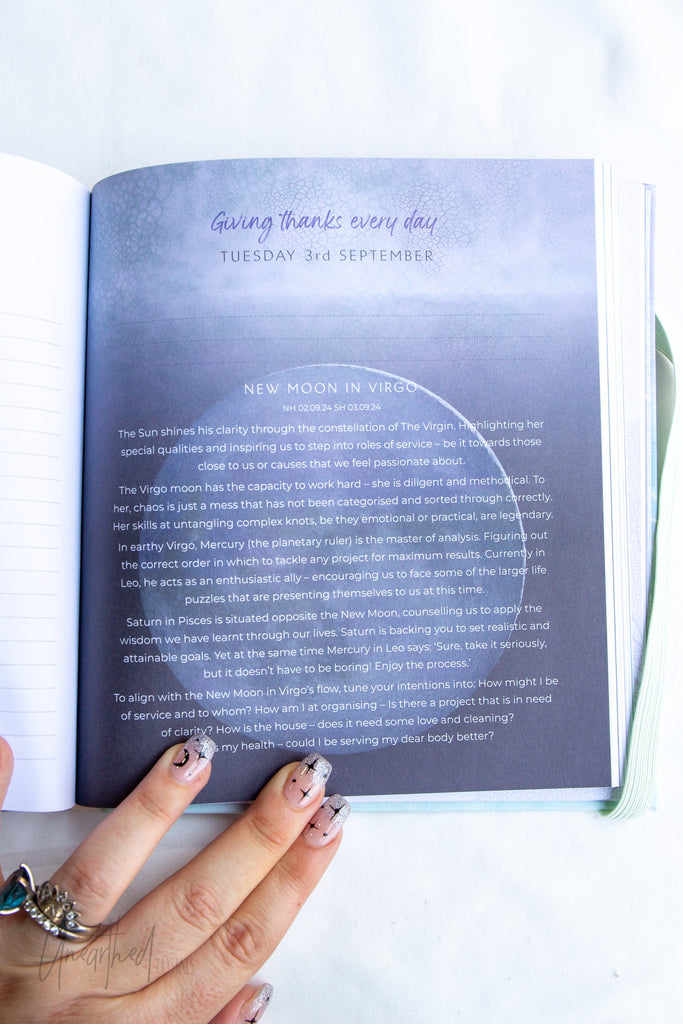 Giving thanks every day
TUESDAY 3rd SEPTEMBER
NEW MOON IN VIRGO
NH 02.09.24 SH 03.09.24
The Sun shines his clarity through the constellation of The Virgin. Highlighting her
special qualities and inspiring us to step into roles of service – be it towards those
close to us or causes that we feel passionate about.
The Virgo moon has the capacity to work hard – she is diligent and methodical. To
her, chaos is just a mess that has not been categorised and sorted through correctly.
Her skills at untangling complex knots, be they emotional or practical, are legendary.
In earthy Virgo, Mercury (the planetary ruler) is the master of analysis. Figuring out
the correct order in which to tackle any project for maximum results. Currently in
Leo, he acts as an enthusiastic ally – encouraging us to face some of the larger life
puzzles that are presenting themselves to us at this time.
Saturn in Pisces is situated opposite the New Moon, counselling us to apply the
wisdom we have learnt through our lives. Saturn is backing you to set realistic and
attainable goals. Yet at the same time Mercury in Leo says: ‘Sure, take it seriously,
but it doesn’t have to be boring! Enjoy the process.’
To align with the New Moon in Virgo’s flow, tune your intentions into: How might I be
of service and to whom? How am I at organising – Is there a project that is in need
of clarity? How is the house – does it need some love and cleaning?
my health – could I be serving my dear body better?
Unearthed
CRYSTALS